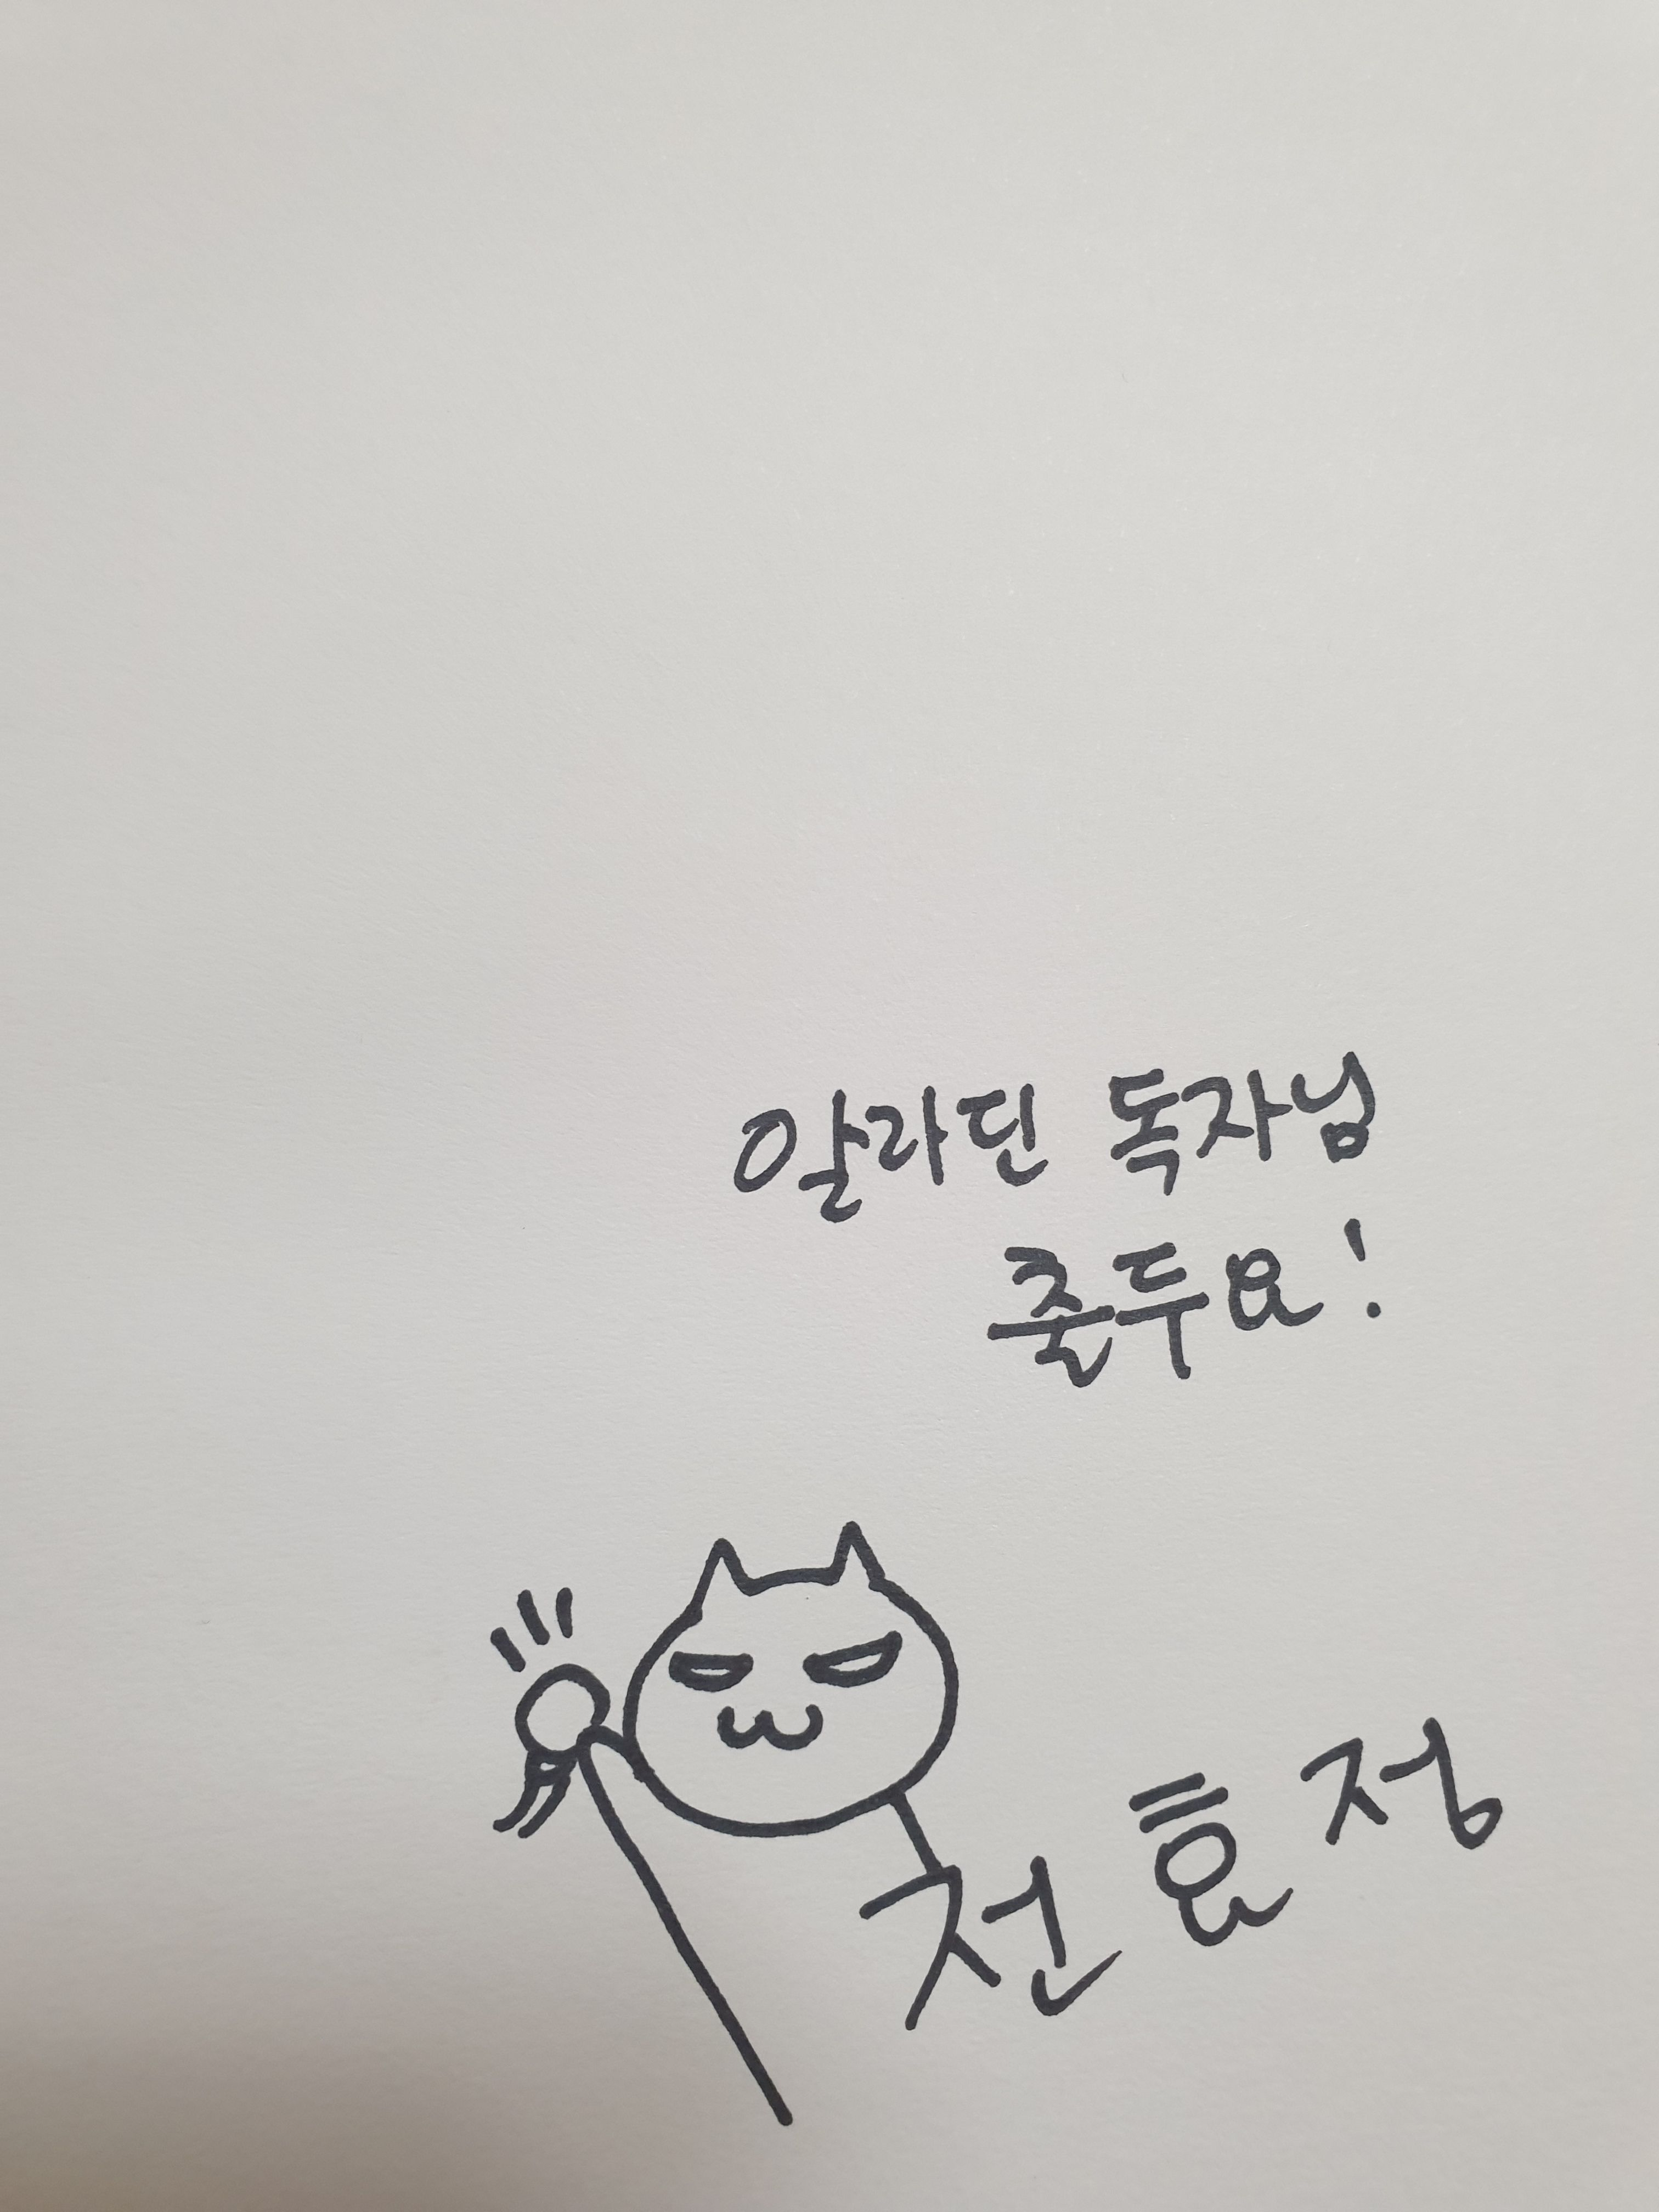 알라딘 독자님
준두요!
전효정